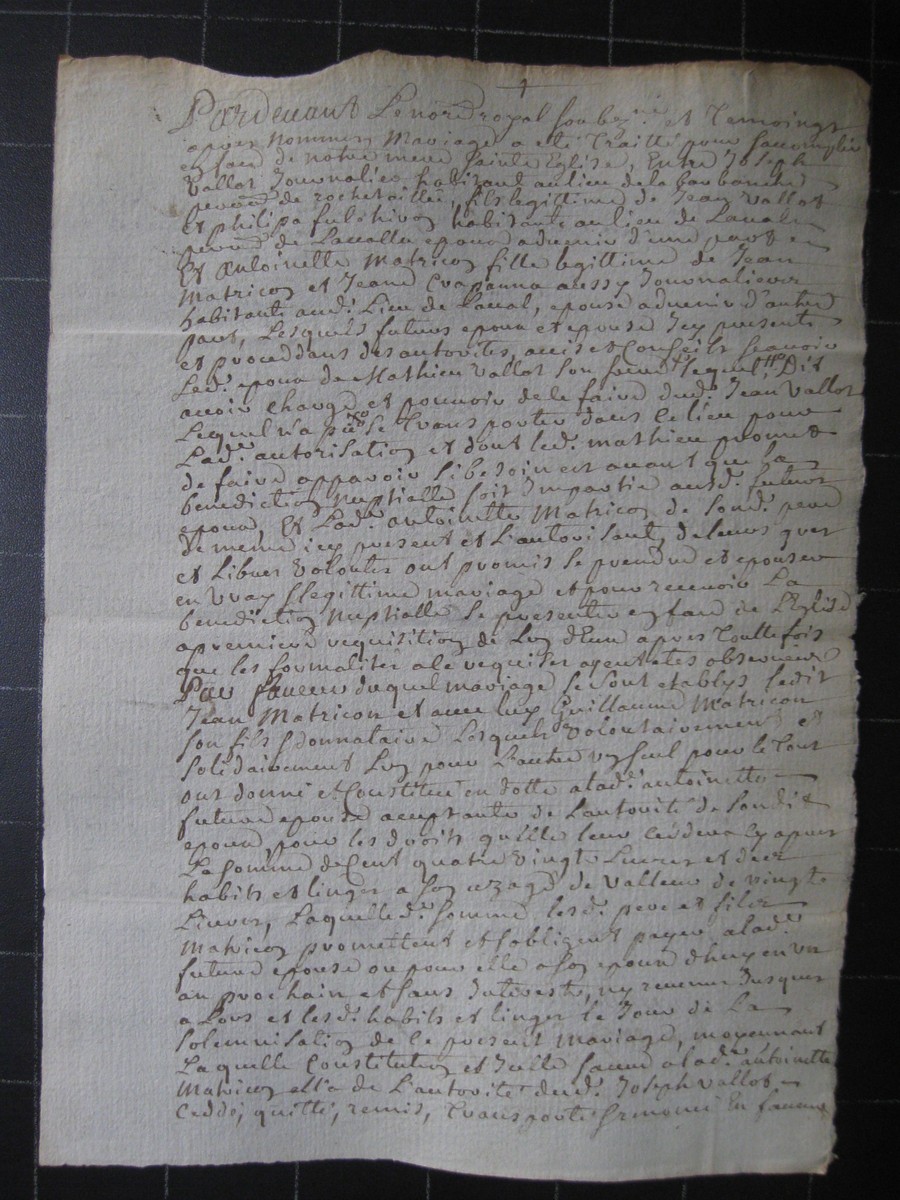 Pardevant Le no.re royal soub.né et Temoings
apres nommes Mariage a eté Traitté pour s'accomplir
en face de notre mere sainte Eglise, Entre Joseph
Vallot Journalier habitant au lieu de la
de rochetaillée, fils legittime de Jean Vallot
et philipa habitants au lieu de Laval
de Lavalla epoux advenir d'une part
Et Antoinette Matricon fille legittime de Jean
Matricon et Jeane aussy Journaliers
habitants aud.t Lieu de Laval, epouse advenir d'autre
part, Lesquels futurs epoux et epouse Icy presents
et proceddans des autorités, avis et Conseils scavoir
Led.t epoux de Mathieu Vallot son frere lequel Dit
avoir Charge et pouvoir de le faire dud.t Jean Vallot
Lequel n'a pu se Transporter dans ce lieu pour
Lad.te autorisation et dont led.t mathieu promet
de faire apparoir si besoin est avant que la
benediction Nuptialle soit Impartie ausd.ts futurs
epoux, Et Lad.te antoinette Matricon de sond.t pere
de meme icy present et L'autorisant, de leurs grés
et Libres volontés ont promis se prendre et epouser
en vray et legittime mariage et pour recevoir La
benediction Nuptialle se presenter en face de L'Eglise
a premiere requisition de Lun d'Eux apres Touttefois
que les formalités a ce requises ayent etés observées
Par faveur duquel mariage se sont etablys ledit
Jean Matricon et avec luy Guillaume Matricon
son fils donnataire Lesquels volontairement et
solidairement Lun pour L'autre un seul pour le Tout
ont donné et Constitué en dotte a lad.te antoinette
future epouse acceptante de L'autorité de sondit
epoux, pour les droits qu'elle leur ceddera cy apres
La somme de Cent quatre vingts Livres et des
habits et linges a son uzage de valleur de vingt
Livres, Laquelle d.te somme lesd.ts pere et fils
Matricon promettent et s'obligent payer a lad.te
future epouse ou pour elle a son epoux d'huy en un
an prochain et sans Interest, ny revenus Jusques
a Lors et lesd.ts habits et linges le Jour de La
solemnisation de le present Mariage, moyennant
Laquelle Constitution et Icelle faveur a lad.te antoinette
Matricon et l'a de L'autorité dud.t Joseph Vallot
Ceddé, quitté, remis, Transporté En faveur